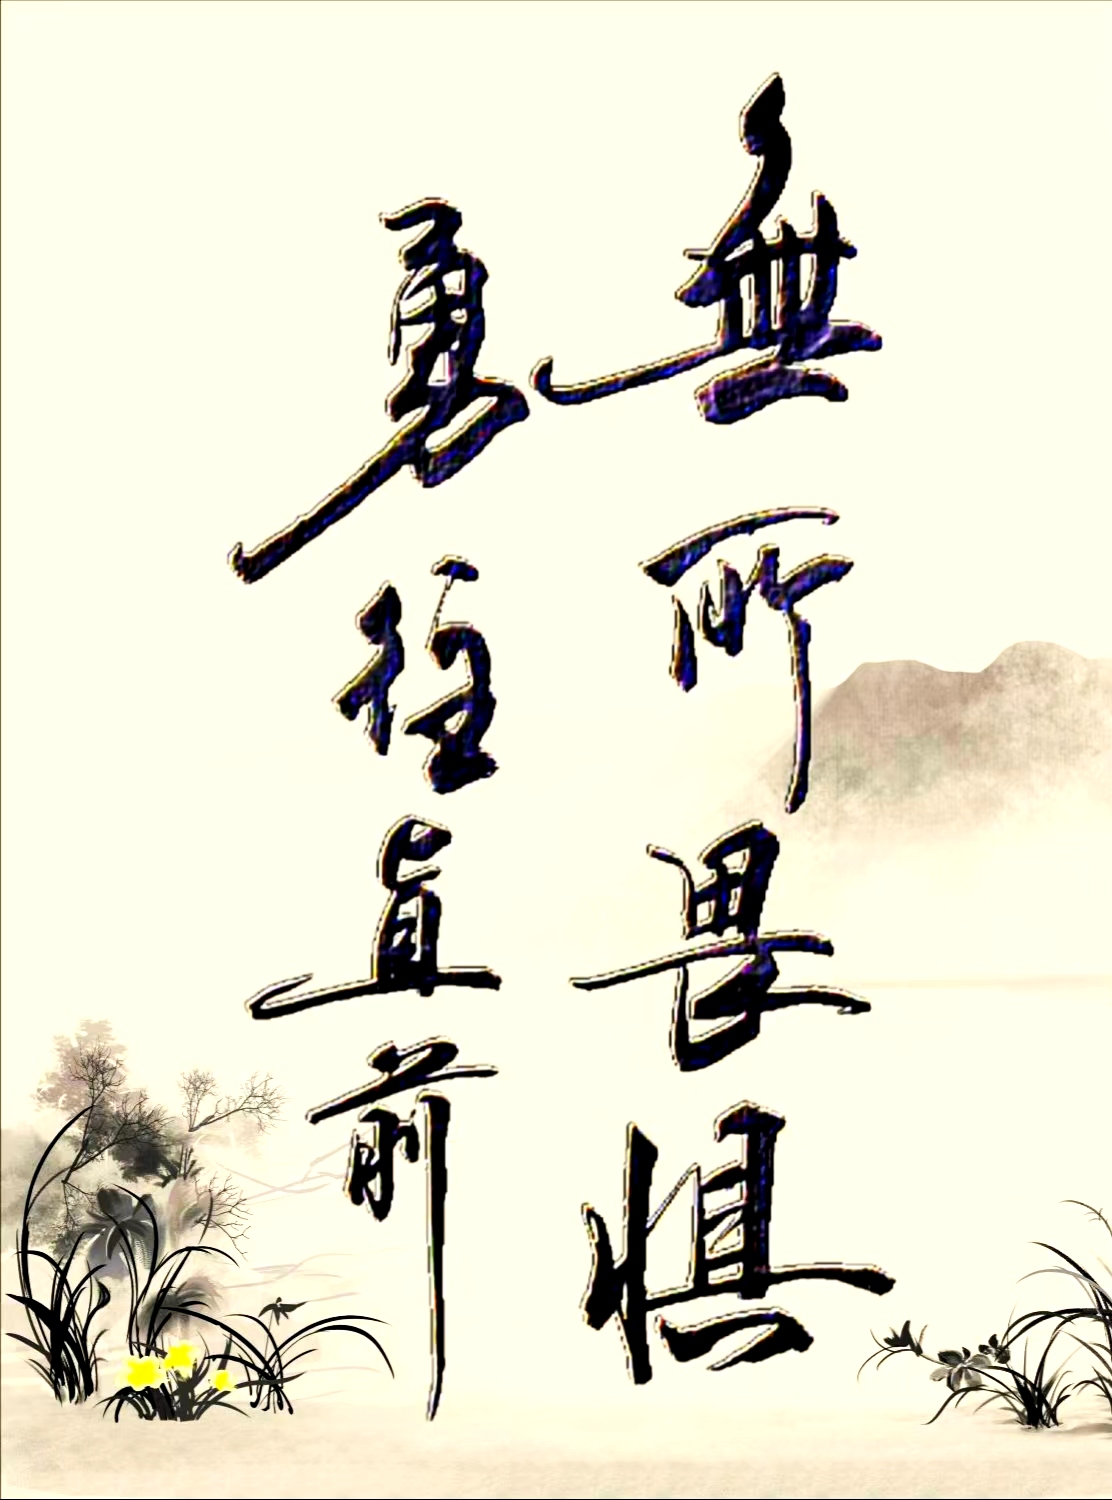 無所畏惧
勇往直前